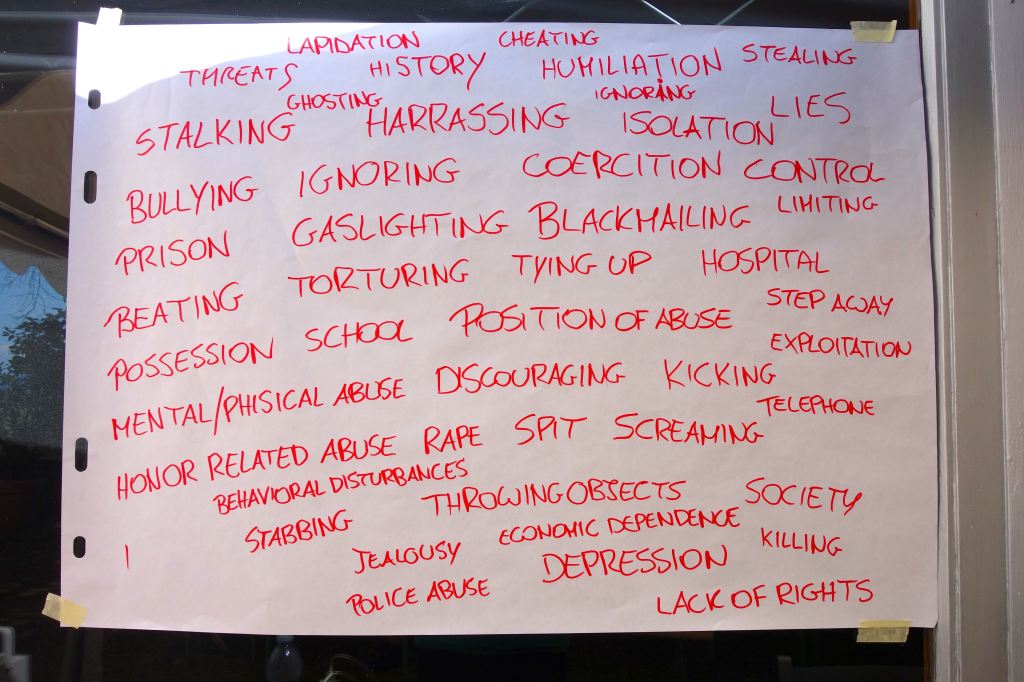 LAPIDATION CHEATING
THREATS HISTORY HUMILIATION STEALING
GHOSTING IGNORING
STALKING HARRASSING ISOLATION LIES
BULLYING IGNORING COERCITION CONTROL
PRISON GASLIGHTING BLACKMAILING LIMITING
BEATING TORTURING TYING UP HOSPITAL
POSSESSION SCHOOL POSITION OF ABUSE STEP AWAY
EXPLOITATION
MENTAL/PHISICAL ABUSE DISCOURAGING KICKING
TELEPHONE
HONOR RELATED ABUSE RAPE SPIT SCREAMING
BEHAVIORAL DISTURBANCES
THROWING OBJECTS SOCIETY
STABBING ECONOMIC DEPENDENCE
JEALOUSY DEPRESSION KILLING
POLICE ABUSE LACK OF RIGHTS